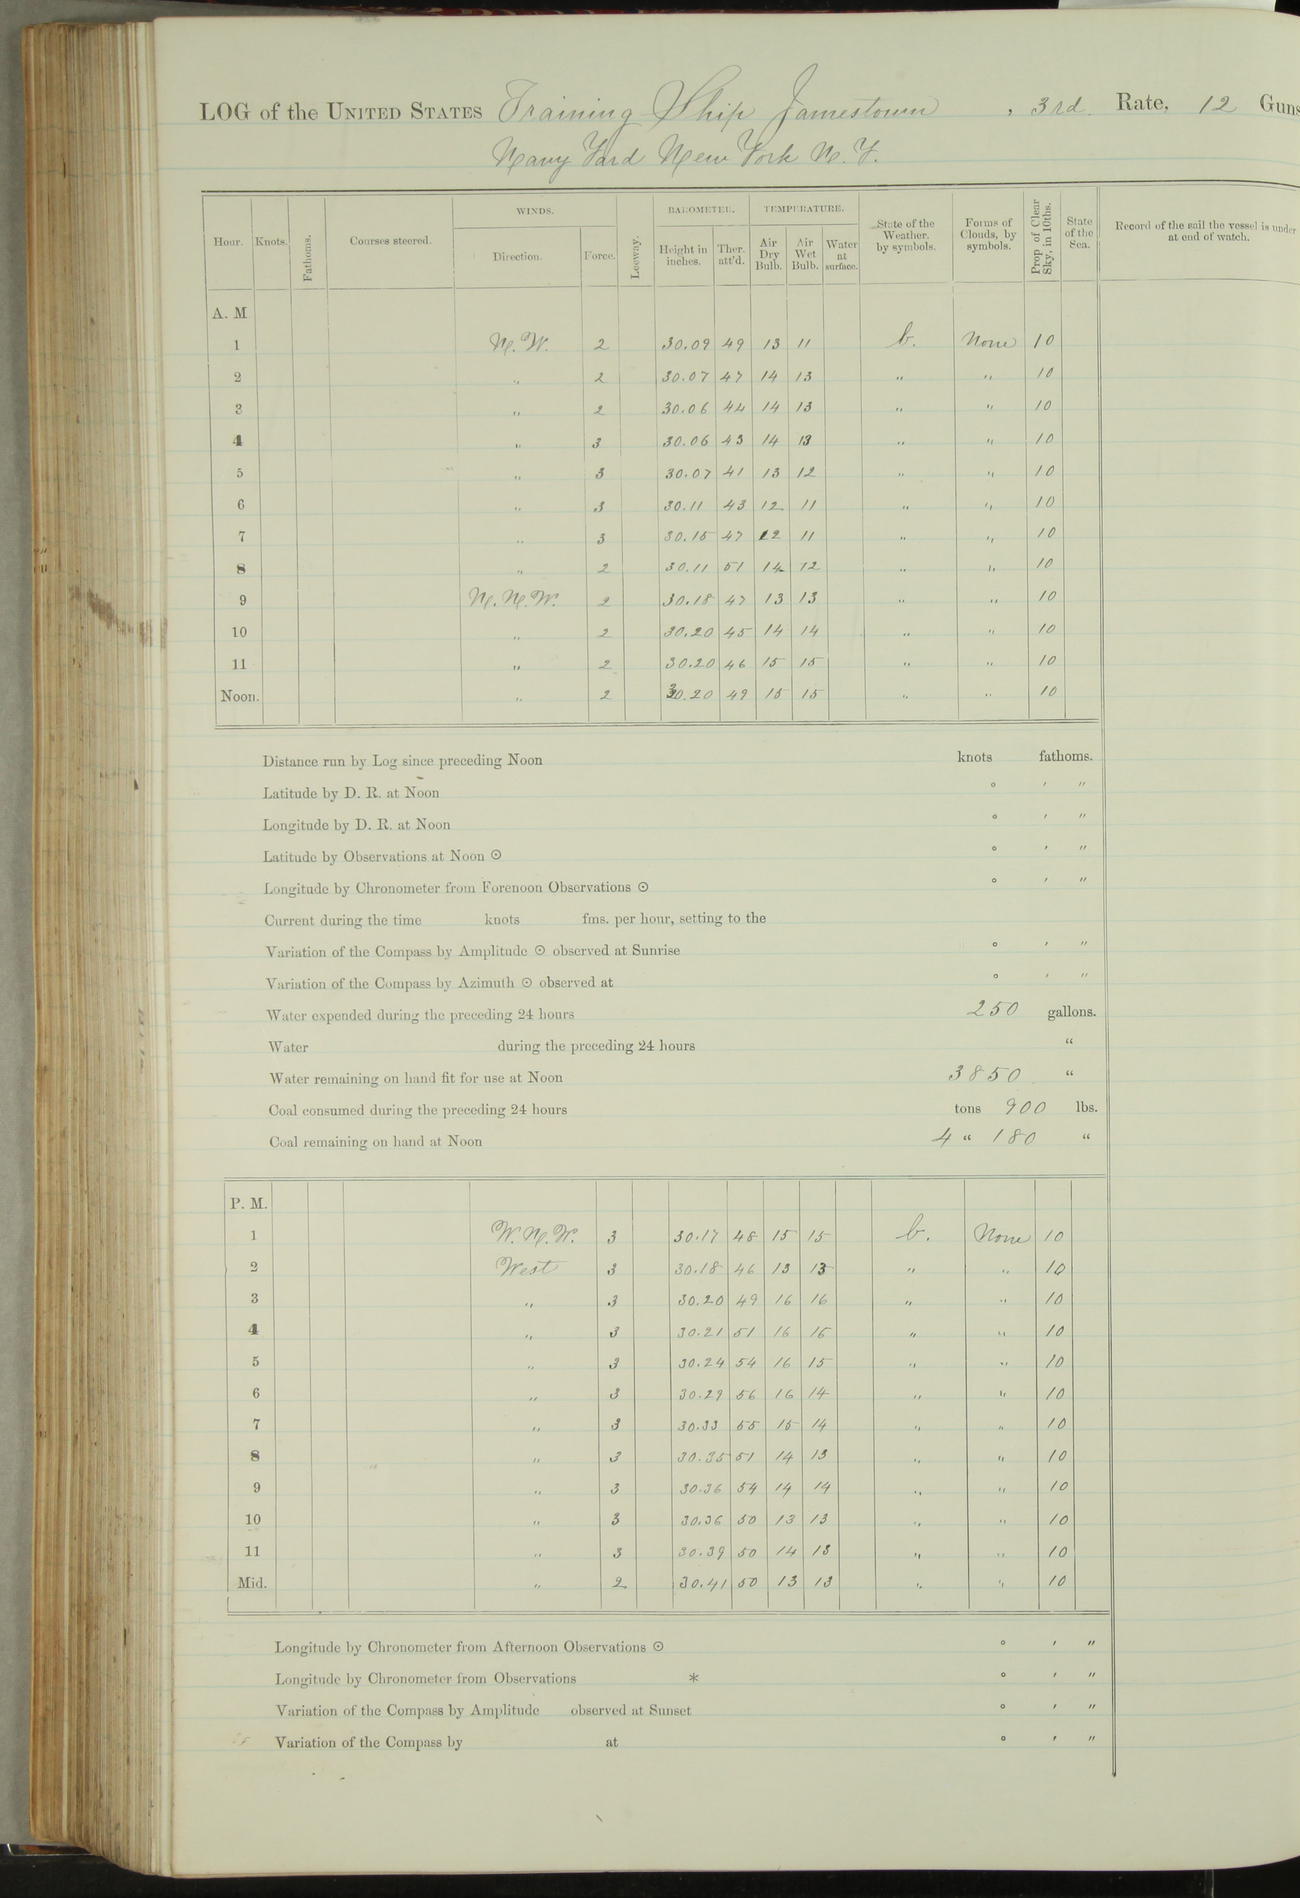 LOG of the UNITED STATES Training Ship Jamestown, 3rd Rate, 12 Guns
Navy Yard New York N.Y.
WINDS. BAROMETER. TEMPERATURE.
Hour. Knots. Fathoms. Courses steered. Direction. Force. Leeway. Height in inches. Ther. att'd. Air Dry Bulb. Air Wet Bulb. Water at surface. State of the Weather, by symbols. Forms of Clouds, by symbols. Prop. of Clear Sky, in 10ths. State of the Sea. Record of the sail the vessel is under at end of watch.
A. M
1 N.W. 2 30.09 49 13 11 b. None 10
2 " 2 30.07 47 14 13 " " 10
3 " 2 30.06 44 14 13 " " 10
4 " 3 30.06 43 14 13 " " 10
5 " 3 30.07 41 13 12 " " 10
6 " 3 30.11 43 12 11 " " 10
7 " 3 30.15 47 12 11 " " 10
8 " 2 30.11 51 14 12 " " 10
9 N.N.W. 2 30.18 47 13 13 " " 10
10 " 2 30.20 45 14 14 " " 10
11 " 2 30.20 46 15 15 " " 10
Noon. " 2 30.20 49 15 15 " " 10
Distance run by Log since preceding Noon knots fathoms.
Latitude by D. R. at Noon ° ' "
Longitude by D. R. at Noon ° ' "
Latitude by Observations at Noon ☉ ° ' "
Longitude by Chronometer from Forenoon Observations ☉ ° ' "
Current during the time knots fms. per hour, setting to the
Variation of the Compass by Amplitude ☉ observed at Sunrise ° ' "
Variation of the Compass by Azimuth ☉ observed at ° ' "
Water expended during the preceding 24 hours 250 gallons.
Water during the preceding 24 hours “
Water remaining on hand fit for use at Noon 3850 “
Coal consumed during the preceding 24 hours tons 900 lbs.
Coal remaining on hand at Noon 4 “ 180 “
P. M.
1 W.N.W. 3 30.17 48 15 15 b. None 10
2 West 3 30.18 46 13 13 " " 10
3 " 3 30.20 49 16 16 " " 10
4 " 3 30.21 51 16 16 " " 10
5 " 3 30.24 54 16 15 " " 10
6 " 3 30.29 56 16 14 " " 10
7 " 3 30.33 55 15 14 " " 10
8 " 3 30.35 51 14 13 " " 10
9 " 3 30.36 54 14 14 " " 10
10 " 3 30.36 50 13 13 " " 10
11 " 3 30.39 50 14 13 " " 10
Mid. " 2 30.41 50 13 13 " " 10
Longitude by Chronometer from Afternoon Observations ☉ ° ' "
Longitude by Chronometer from Observations * ° ' "
Variation of the Compass by Amplitude observed at Sunset ° ' "
Variation of the Compass by at ° ' "